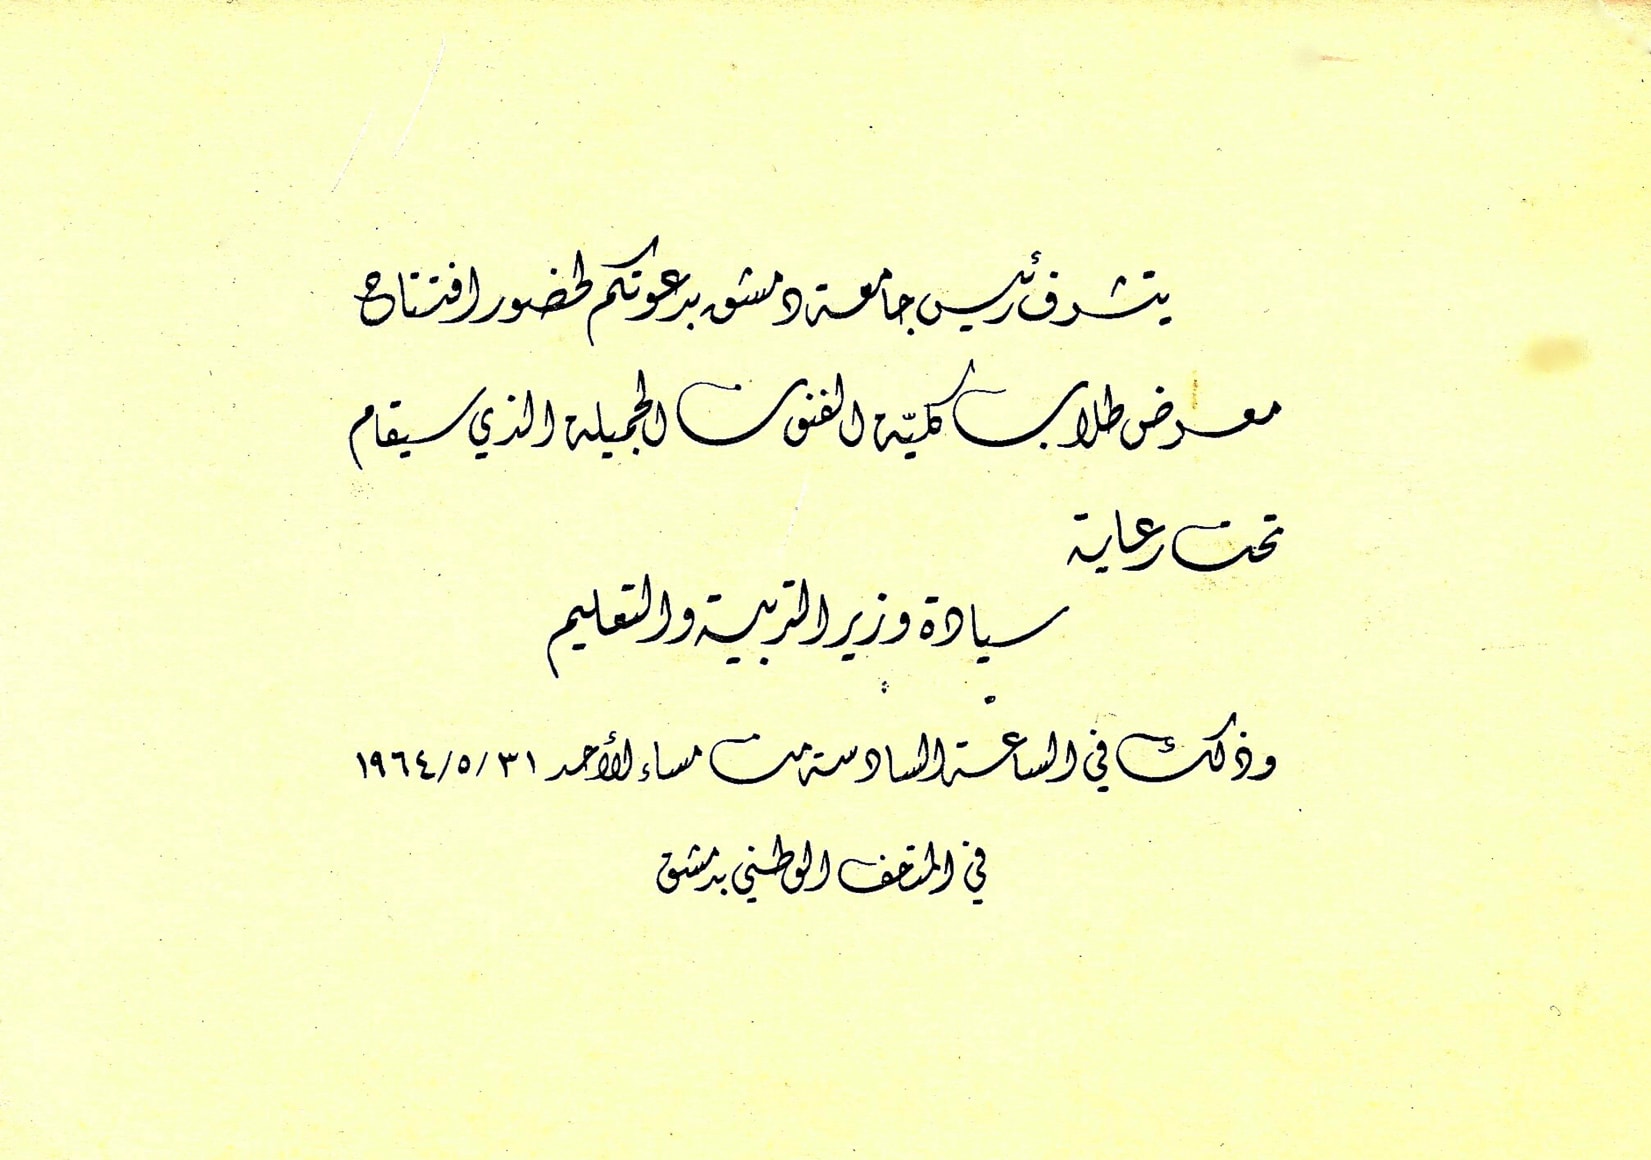 يتشرف رئيس جامعة دمشق بدعوتكم لحضور افتتاح
معرض طلاب كليّة الفنون الجميلة الذي سيقام
تحت رعاية
سيادة وزير التربية والتعليم
وذلك في الساعة السادسة من مساء الأحد ٣١/٥/١٩٦٤
في المتحف الوطني بدمشق